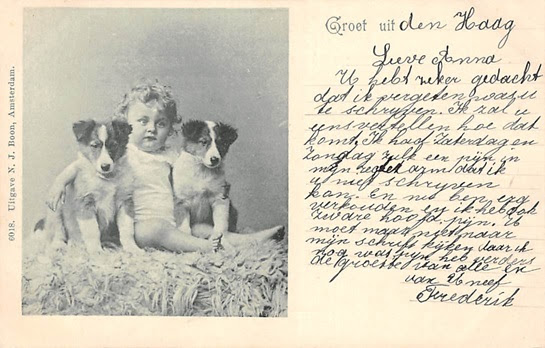 6018. Uitgave N. J. Boon, Amsterdam.
Groet uit den Haag
Lieve Anna
U hebt zeker gedacht
dat ik vergeten was u
te schrijven. Ik zal u
eens vertellen hoe dat
komt. Ik had Zaterdag en
Zondag zulk een pijn in
mijn arm dat ik
u niet schrijven
kon. En nu ben erg
verkouden en ik heb ook
zware hoofdpijn. U
moet maar niet naar
mijn schrift kijken daar ik
nog wat pijn heb verders
de groeten van alle en
van Uw neef
Frederik